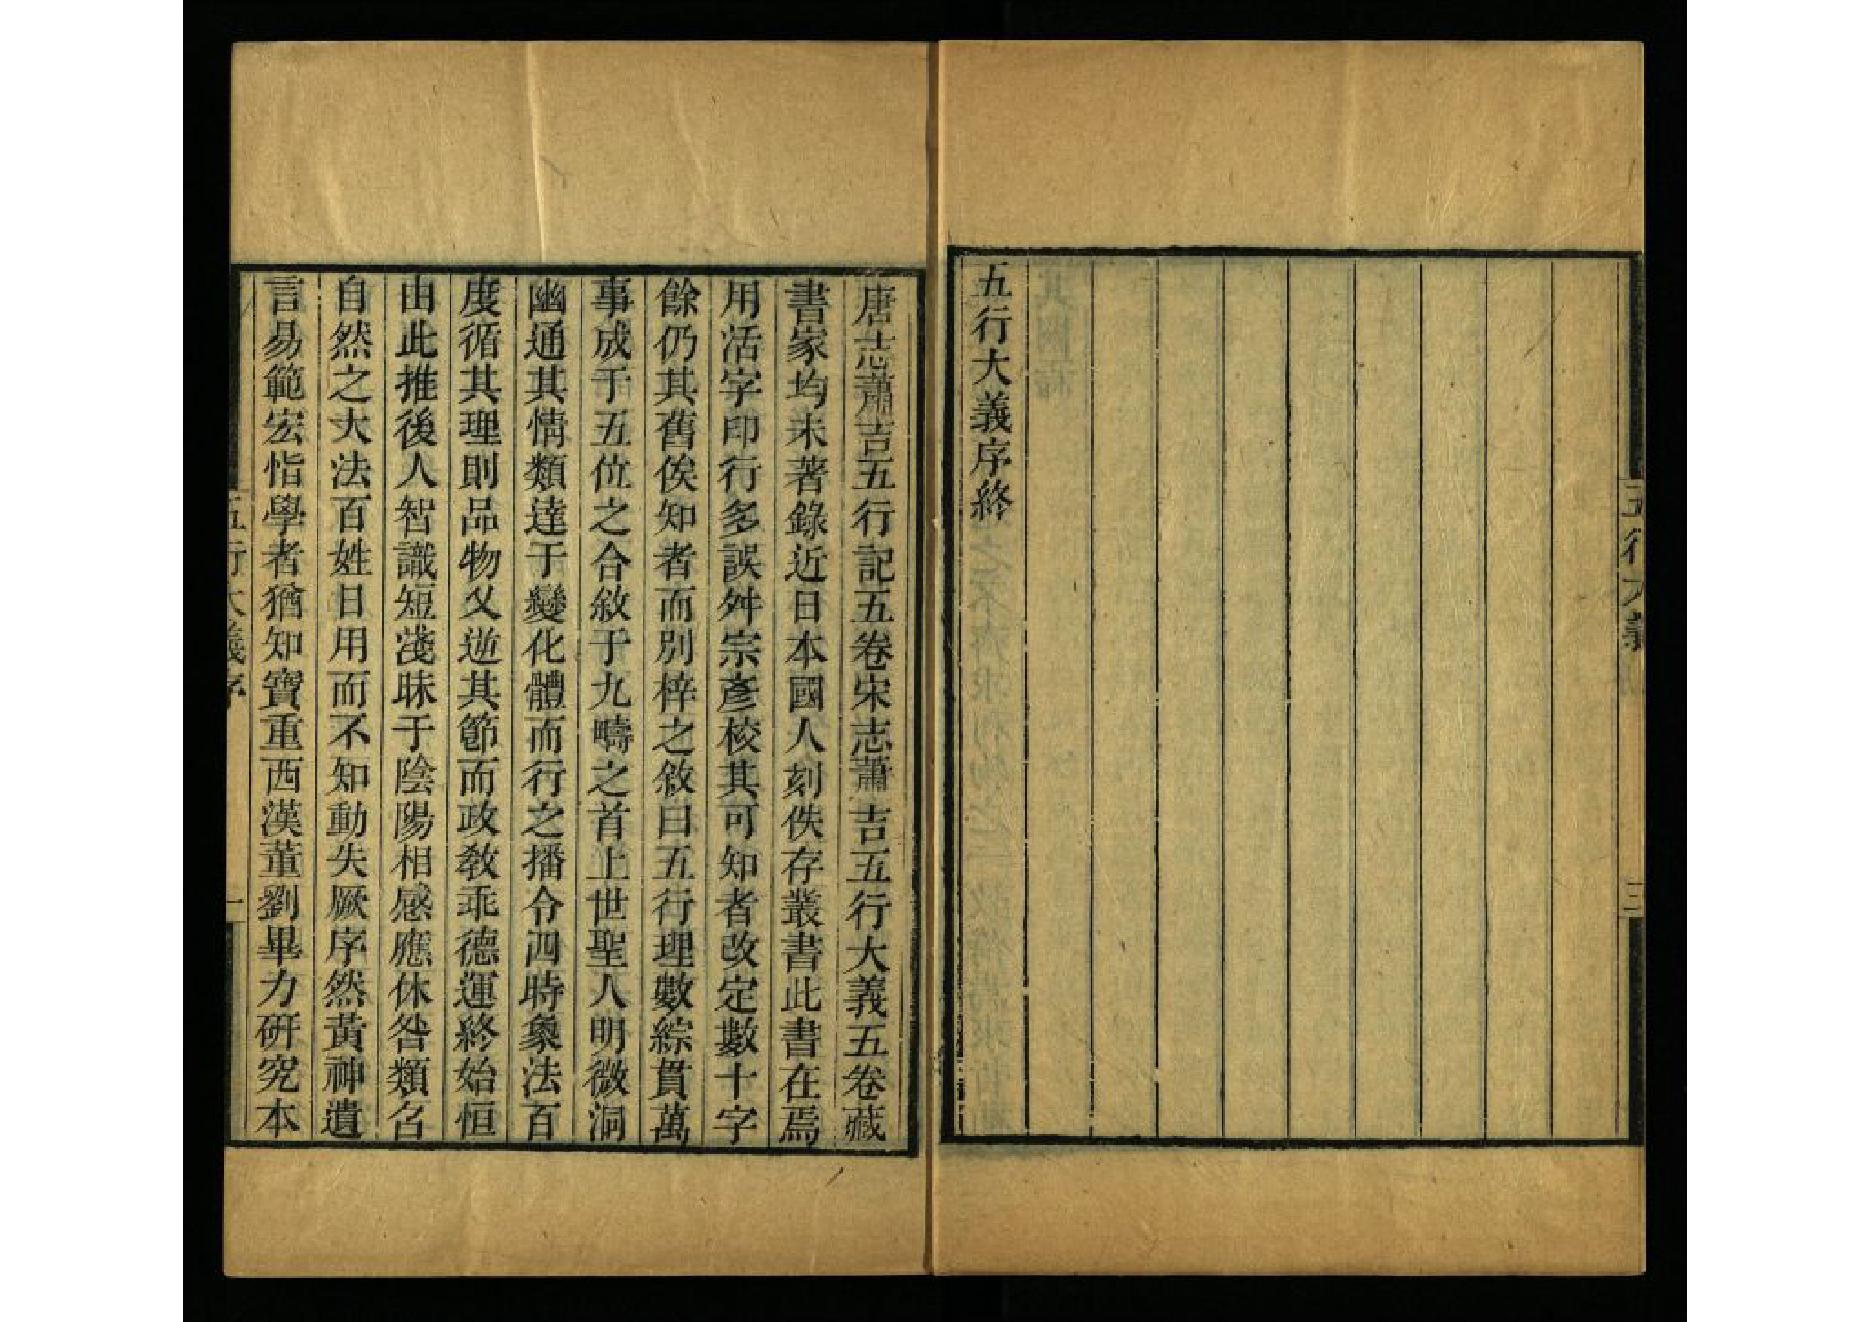 五行大義
三
五行大義序終
唐志蕭吉五行記五卷宋志蕭吉五行大義五卷藏
書家均未著錄近日本國人刻佚存叢書此書在焉
用活字印行多誤舛宗彥校其可知者改定數十字
餘仍其舊俟知者而別梓之敘曰五行理數綜貫萬
事成于五位之合敘于九疇之首上世聖人明微洞
幽通其情類達于變化體而行之播令四時象法百
度循其理則品物乂逆其節而政教乖德運終始恒
由此推後人智識短淺昧于陰陽相感應休咎類召
自然之大法百姓日用而不知動失厥序然黃神遺
言易範宏恉學者猶知寶重西漢董劉畢力研究本
五行大義序
一